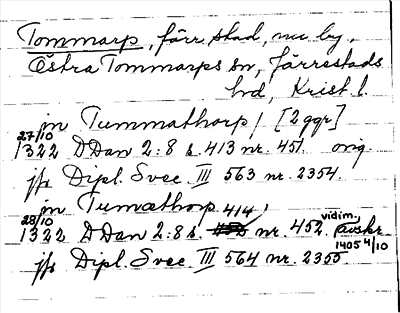 Tommarp, förr stad, nu by,
Östra Tommarps sn, Järrestads
hd, Krist. l.
in Tummathorp / [2 ggr]
27/10 1322 DDan 2:8 s. 413 nr. 451. orig.
jfr Dipl. Svec. III 563 nr. 2354.
in Tumæthorp
28/10 1322 DDan 2:8 s. 414 nr. 452. vidim. avskr. 1405 4/10
jfr Dipl. Svec. III 564 nr. 2355